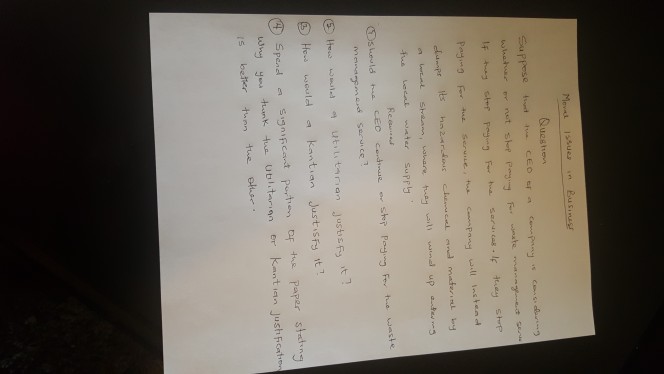 Moral Issues in Business
Question
Suppose that the CEO of a company is considering
whether or not stop paying for waste management
If they stop paying for the services. If they stop
Paying for the service, the company will instead
dumps its hazardous chemical and material by
a local stream, where they will wind up entering
the local water supply.
Required
① Should the CEO continue or stop paying for the waste
management service?
② How would a Utilitarian justify it?
③ How would a Kantian justify it?
④ Spend a significant portion of the paper stating
why you think the Utilitarian or Kantian justification
is better than the other.